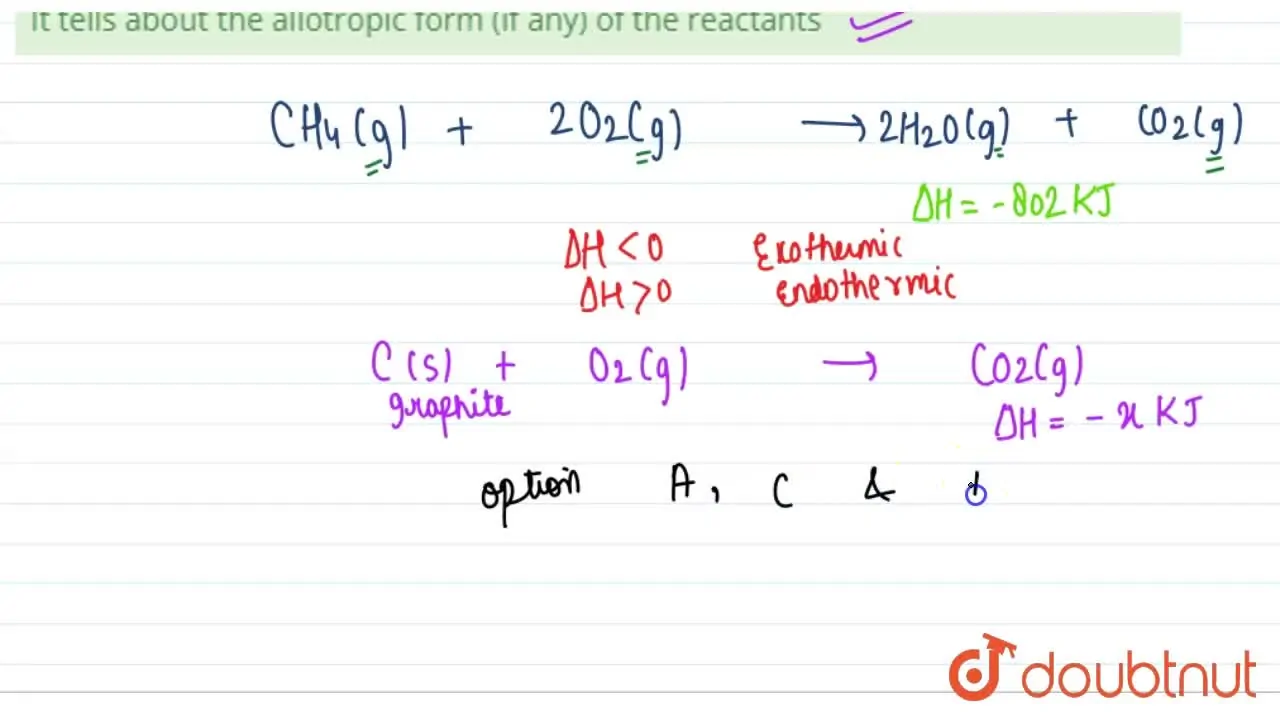 It tells about the allotropic form (if any) of the reactants
CH4(g) + 2O2(g) → 2H2O(g) + CO2(g)
ΔH = -802 KJ
ΔH < 0 Exothermic
ΔH > 0 Endothermic
C(s) + O2(g) → CO2(g)
graphite
ΔH = -x KJ
option A, C &
doubtnut